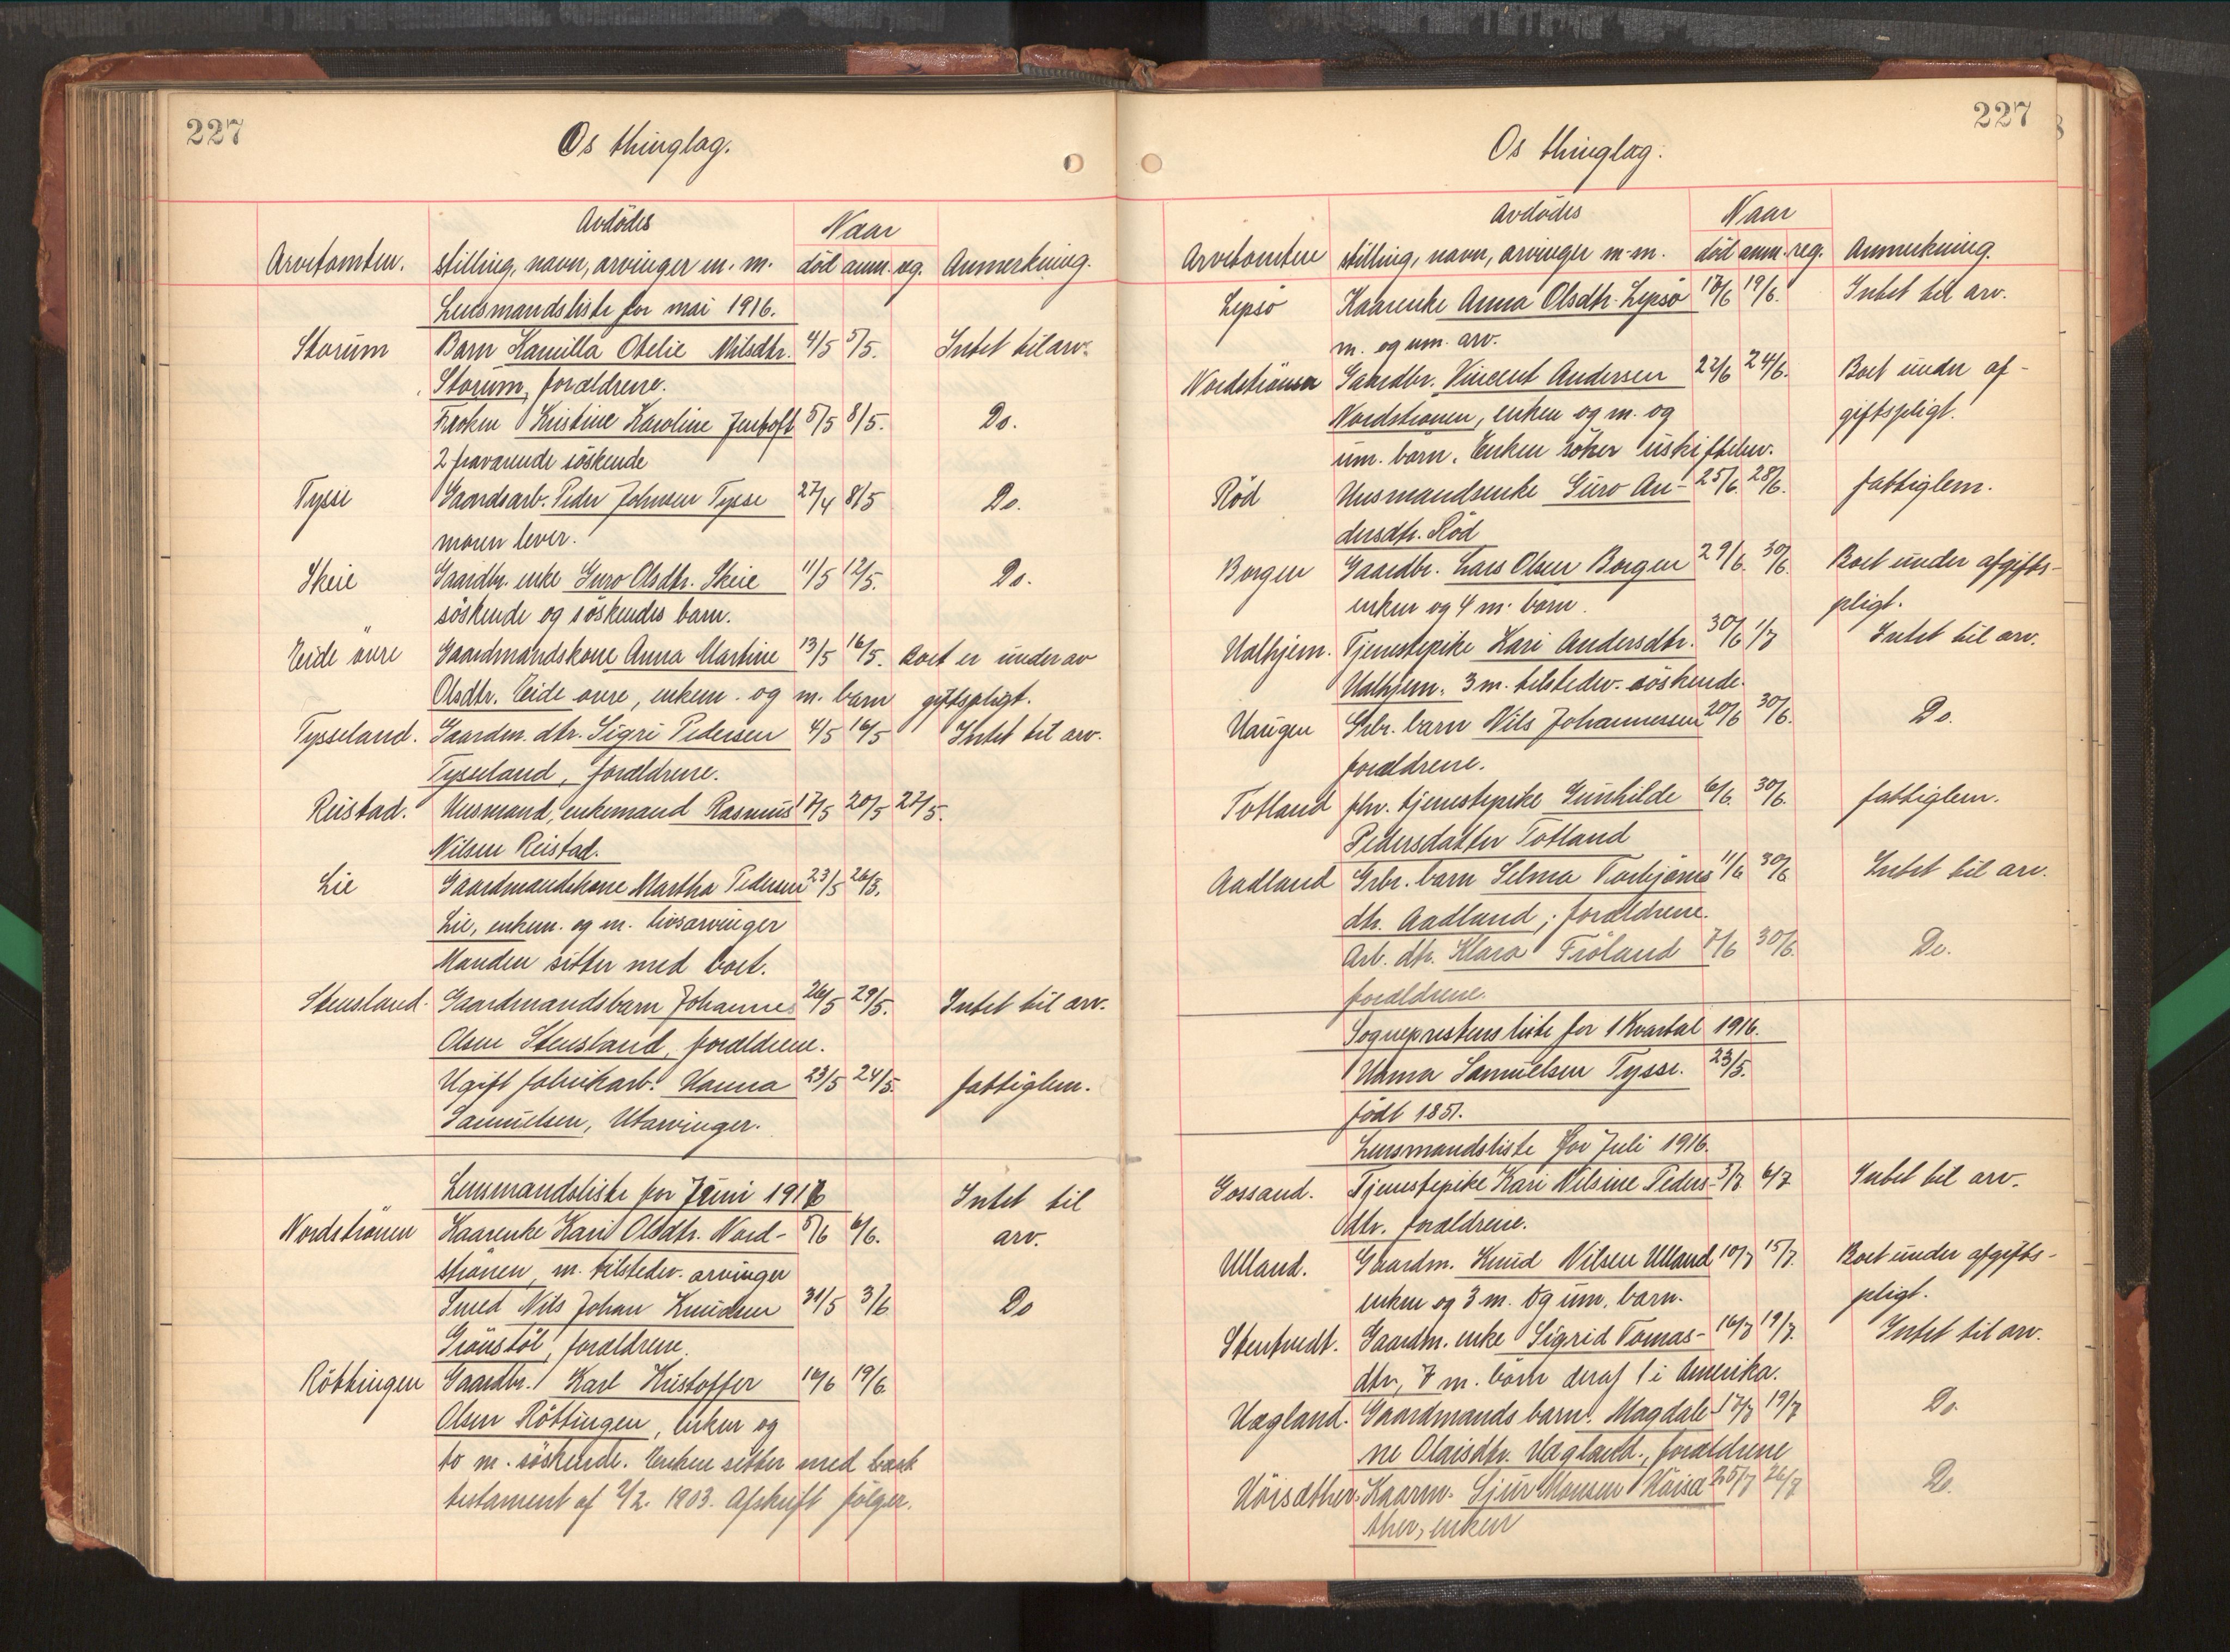 227
Os thinglag.
Avdödes
Naar
Arvetomten. stilling, navn, arvinger m. m. död anm. reg. Anmerkning.
Lensmandsliste for mai 1916.
Storum Barn Kamilla Otelie Nilsdtr. 4/5 5/5. Intet til arv.
Storum, forældrene.
Fröken Kristine Karoline Jentoft 5/5 8/5. Do.
2 fraværende söskende
Tysse Gaardsarb. Peder Johnsen Tysse 27/4 8/5 Do.
moren lever.
Skeie Gaardbr. enke Guro Olsdtr. Skeie 11/5 12/5. Do.
söskende og söskendes barn.
Eide övre Gaardmandskone Anna Martine 13/5 16/5. Boet er under av
Olsdtr. Eide övre, enkem. og m. barn giftspligt.
Tysseland. Gaardm. dtr. Sigri Pedersen 4/5 16/5 Intet til arv.
Tysseland, forældrene.
Reistad. Husmand, enkemand Rasmus 17/5 20/5 27/5.
Nilsen Reistad.
Lie Gaardmandskone Martha Pedersen 23/5 26/5.
Lie, enkem. og m. livsarvinger
Manden sitter med boet.
Stensland. Gaardmandsbarn Johannes 26/5 29/5. Intet til arv.
Olsen Stensland, forældrene.
Ugift fabrikarb. Hanna 23/5 24/5. fattiglem.
Samuelsen, Utarvinger.
Lensmandsliste for Juni 1916 Intet til
Nordströnen Kaarenke Kari Olsdtr. Nord- 5/6 6/6. arv.
strönen, m. tilstedev. arvinger
Smed Nils Johan Knudsen 31/5 3/6 Do
Grönstöl, forældrene.
Röttingen Gaardbr. Karl Kristoffer 16/6 19/6
Olsen Röttingen, enken og
to m. söskende. Enken sitter med
testament af 2/2. 1903. Afskrift fölger.
227
Os thinglag.
Avdödes
Naar
Arvetomten stilling, navn, arvinger m.m. död anm. reg. Anmerkning.
Lepsö Kaarenke Anna Olsdtr. Lepsö 18/6 19/6. Intet til arv.
m. og um. arv.
Nordströnen Gaardbr. Vincent Andersen 22/6 24/6. Boet under af-
Nordströnen, enken og m. og giftspligt.
um. barn. Enken söker uskiftebev.
Röd Husmandsenke Guro An- 25/6. 28/6. fattiglem.
dersdtr. Röd
Borgen Gaardbr. Lars Olsen Borgen 29/6. 30/6. Boet under afgifts-
enken og 4 m. barn. pligt.
Halhjem. Tjenestepike Kari Andersdtr. 30/6 1/7 Intet til arv.
Halhjem. 3 m. tilstedev. söskende.
Haugen Grbr. barn Nils Johannesen 20/6 30/6. Do.
forældrene.
Totland fhv. tjenestepike Gunhilde 6/6. 30/6. fattiglem.
Pedersdatter Totland
Aadland Grbr. barn Selma Torbjörns 11/6 30/6 Intet til arv.
dtr. Aadland; forældrene.
Arb. dtr. Klara Fröland 7/6 30/6. Do.
forældrene.
Sogneprestens liste for 1 Kvartal 1916.
Hanna Samuelsen Tysse. 23/5.
födt 1851.
Lensmandsliste for Juli 1916.
Gossand. Tjenestepike Kari Nilsine Peders- 3/7 6/7 Intet til arv.
dtr. forældrene.
Ulland. Gaardm. Knud Nilsen Ulland 10/7 15/7. Boet under afgifts-
enken og 3 m. og um. barn. pligt.
Stentvedt. Gaardm. enke Sigrid Tomas- 16/7 19/7. Intet til arv.
dtr, 7 m. börn deraf 1 i Amerika.
Hægland. Gaardmands barn. Magdale- 17/7 19/7 Do.
ne Olaisdtr. Hægland., forældrene
Höisæther. Kaarm. Sjur Monsen Höisæ 25/7 26/7 Do.
ther, enken